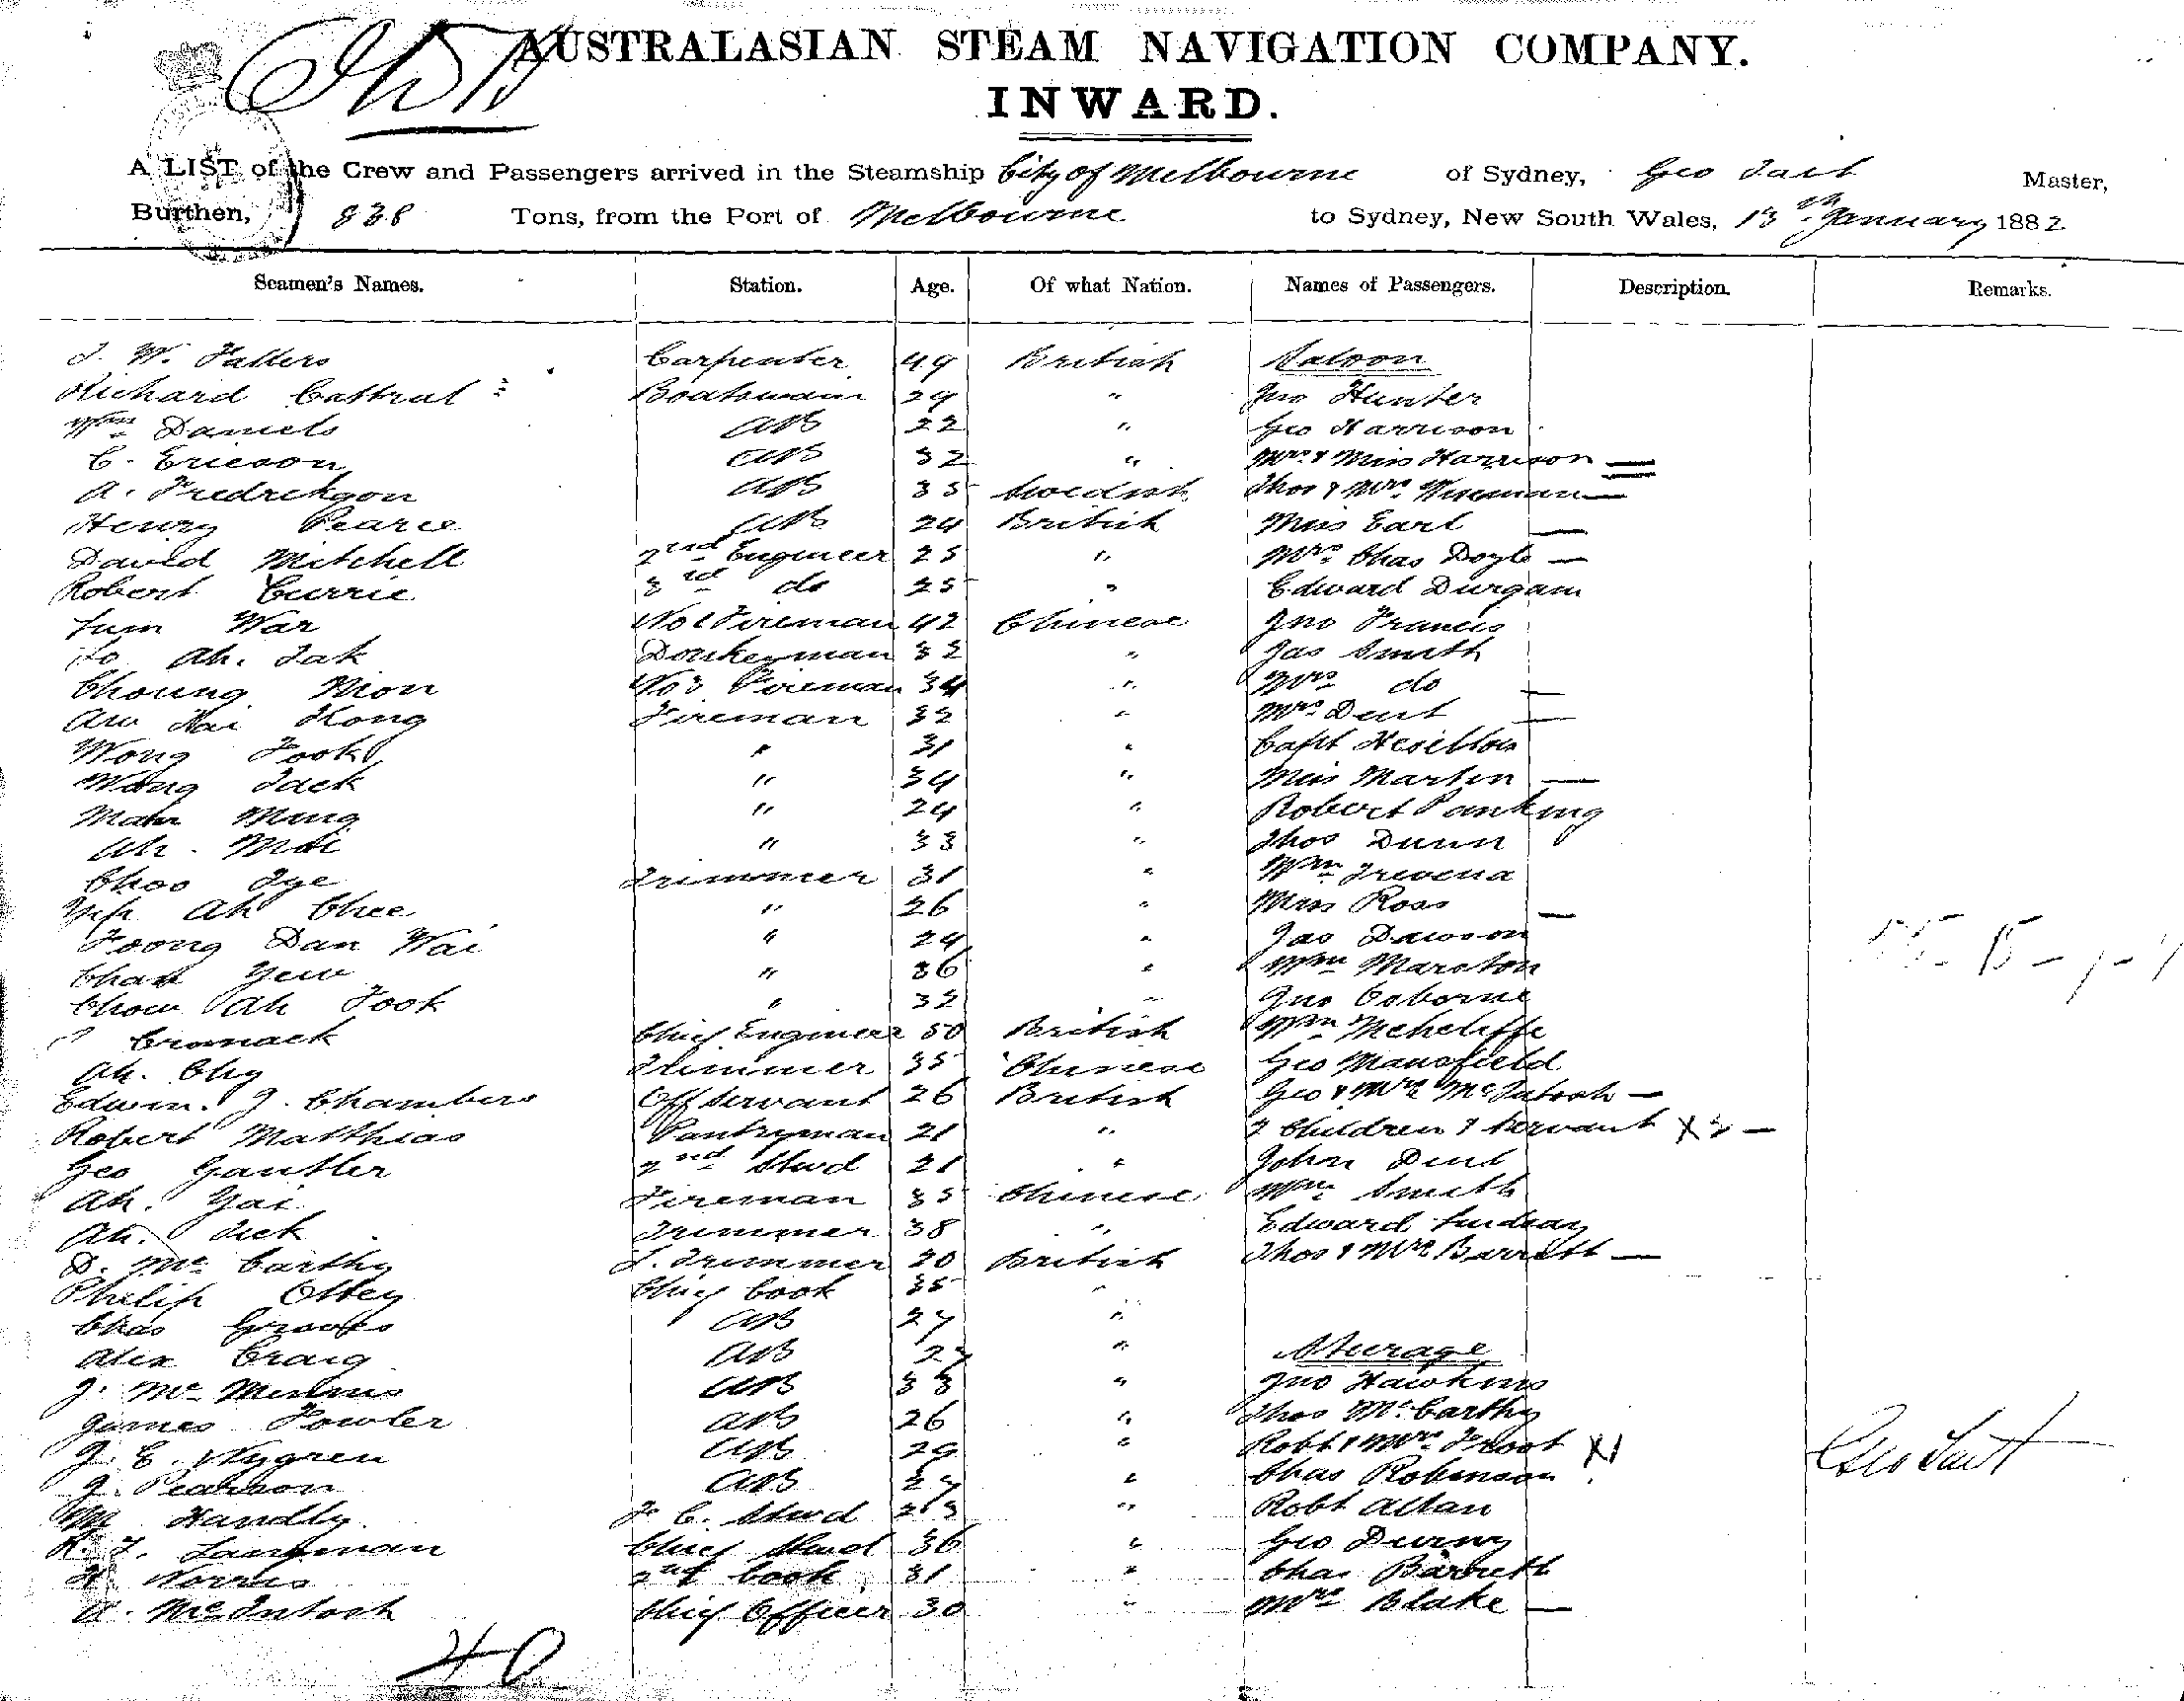 AUSTRALASIAN STEAM NAVIGATION COMPANY.
INWARD.
A LIST of the Crew and Passengers arrived in the Steamship City of Melbourne of Sydney, Geo Tait Master,
Burthen, 838 Tons, from the Port of Melbourne to Sydney, New South Wales, 13th January 1882
Seamen's Names. Station. Age. Of what Nation. Names of Passengers. Description. Remarks.
J. W. Carpenter 49 British Saloon
Richard Cattral Boatswain 29 " Jno Hunter
Wm Daniels AB 22 " Geo Harrison
C. Ericson AB 32 " Mrs & Miss Harrison
A. Fredrickson AB 35 Swedish Thos & Mrs Wiseman
Henry Pearce AB 24 British Miss Earl
David Mitchell 2nd Engineer 25 " Mrs Chas Doyle
Robert Currie 3rd do 25 " Edward Durgam
War No 1 Fireman 42 Chinese Jno Francis
Ah. Donkeyman 32 " Jas Smith
Choung No 2 Fireman 34 " Mrs do
Kong Fireman 32 " Mrs Dent
Wong Fook " 31 " Capt
Wong Jack " 34 " Miss Martin
Ming " 24 " Robert
Ah. " 33 " Thos Dunn
Choo Trimmer 31 " Wm Trevena
Yip Ah Chee " 26 " Miss Ross
Foong Dan Wai " 24 " Jas Dawson
Yew " 36 " Wm Marston
Chow Ah Fook " 32 " Jno Osborne
Cromack Chief Engineer 50 British Wm
Ah. Trimmer 35 Chinese Geo Mansfield
Edwin. J. Chambers Off Servant 26 British Geo & Mrs McIntosh
Robert Matthias Pantryman 21 " 2 Children & Servant X 3
Geo 2nd Stwd 21 " John Dent
Ah. Fireman 35 Chinese Wm Smith
Ah. Trimmer 38 " Edward Lindsay
D. McCarthy Trimmer 20 British Thos & Mrs Barrett
Philip Ottey Chief Cook 35 "
Chas AB 27 "
Alex Craig AB 27 " Steerage
J. Mc AB 33 " Jno Hawkins
James Fowler AB 26 " Thos McCarthy
J. E. Nygren AB 29 " Robt & Mrs Frost X1
J. Pearson AB 27 " Chas Robinson Geo Tait
Handly F. C. Stwd " Robt Allan
Chief Stwd 36 " Geo
Norris 2nd Cook 31 " Chas Barrett
A. McIntosh Chief Officer 30 " Mrs Blake
40